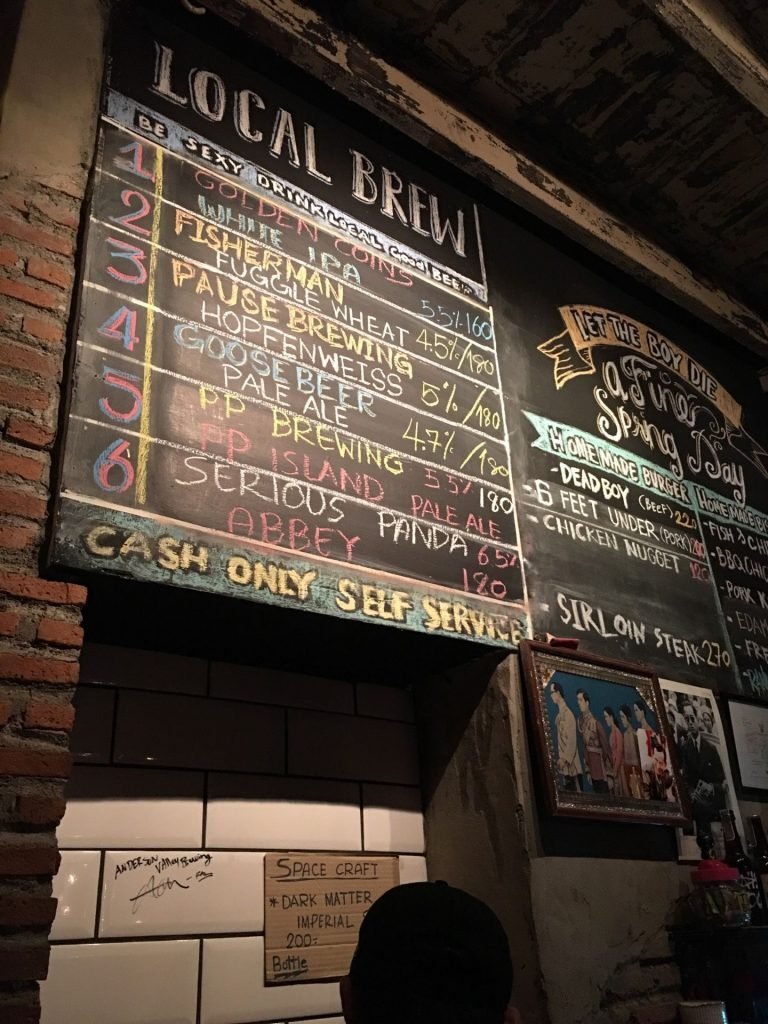 LOCAL BREW
BE SEXY DRINK LOCAL Good BEER
1 GOLDEN COINS
WHITE IPA 5.5% 160
2 FISHERMAN
FUGGLE WHEAT 4.5%/180
3 PAUSE BREWING
HOPFENWEISS 5%/180
4 GOOSEBEER
PALE ALE 4.7%/180
5 PP BREWING 5.5% 180
PP ISLAND PALE ALE
6 SERIOUS PANDA 6.5%
ABBEY 180
CASH ONLY SELF SERVICE
LET THE BOY DIE
a Fine
Spring Day
HOMEMADE BURGER
- DEADBOY (BEEF) 220
- 6 FEET UNDER (PORK)
- CHICKEN NUGGET 120
SIRLOIN STEAK 270
HOMEMADE
- FISH &
- BBQ
- PORK
ANDERSON Valley Brewing
SPACE CRAFT
* DARK MATTER
IMPERIAL
200-
Bottle